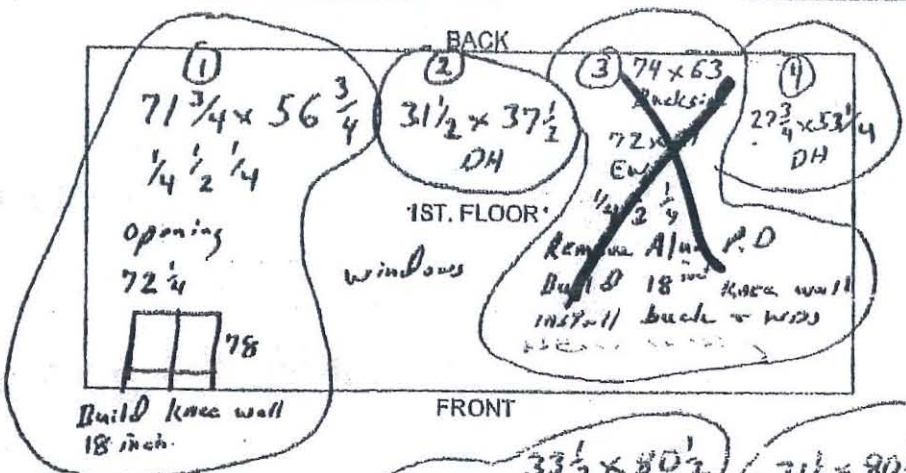 BACK
①
71 3/4 x 56 3/4
1/4 1/2 1/4
opening
72 1/4
78
Build knee wall
18 inch
②
31 1/2 x 37 1/2
DH
1ST. FLOOR
windows
③ 74 x 63
Buckside
72 x
1/4 1/2 1/4
Remove Alum P.D
Build 18 inch knee wall
install buck
④
27 3/4 x 53 1/4
DH
FRONT
33 1/2 x 80 1/2